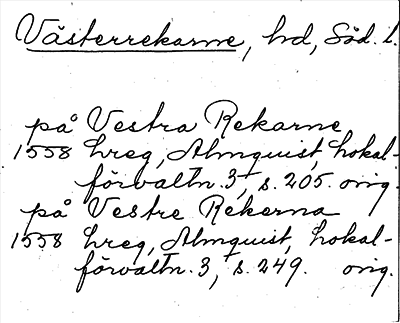 Västerrekarne, hd, Söd. l.
på Vestra Rekarne
1558 hreg, Almquist, Lokal-
förvaltn. 3, s. 205. orig.
på Vestre Rekerna
1558 hreg, Almquist, Lokal-
förvaltn. 3, s. 249. orig.